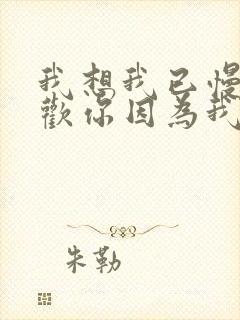 我想我已慢
歡你因為我
朱勒